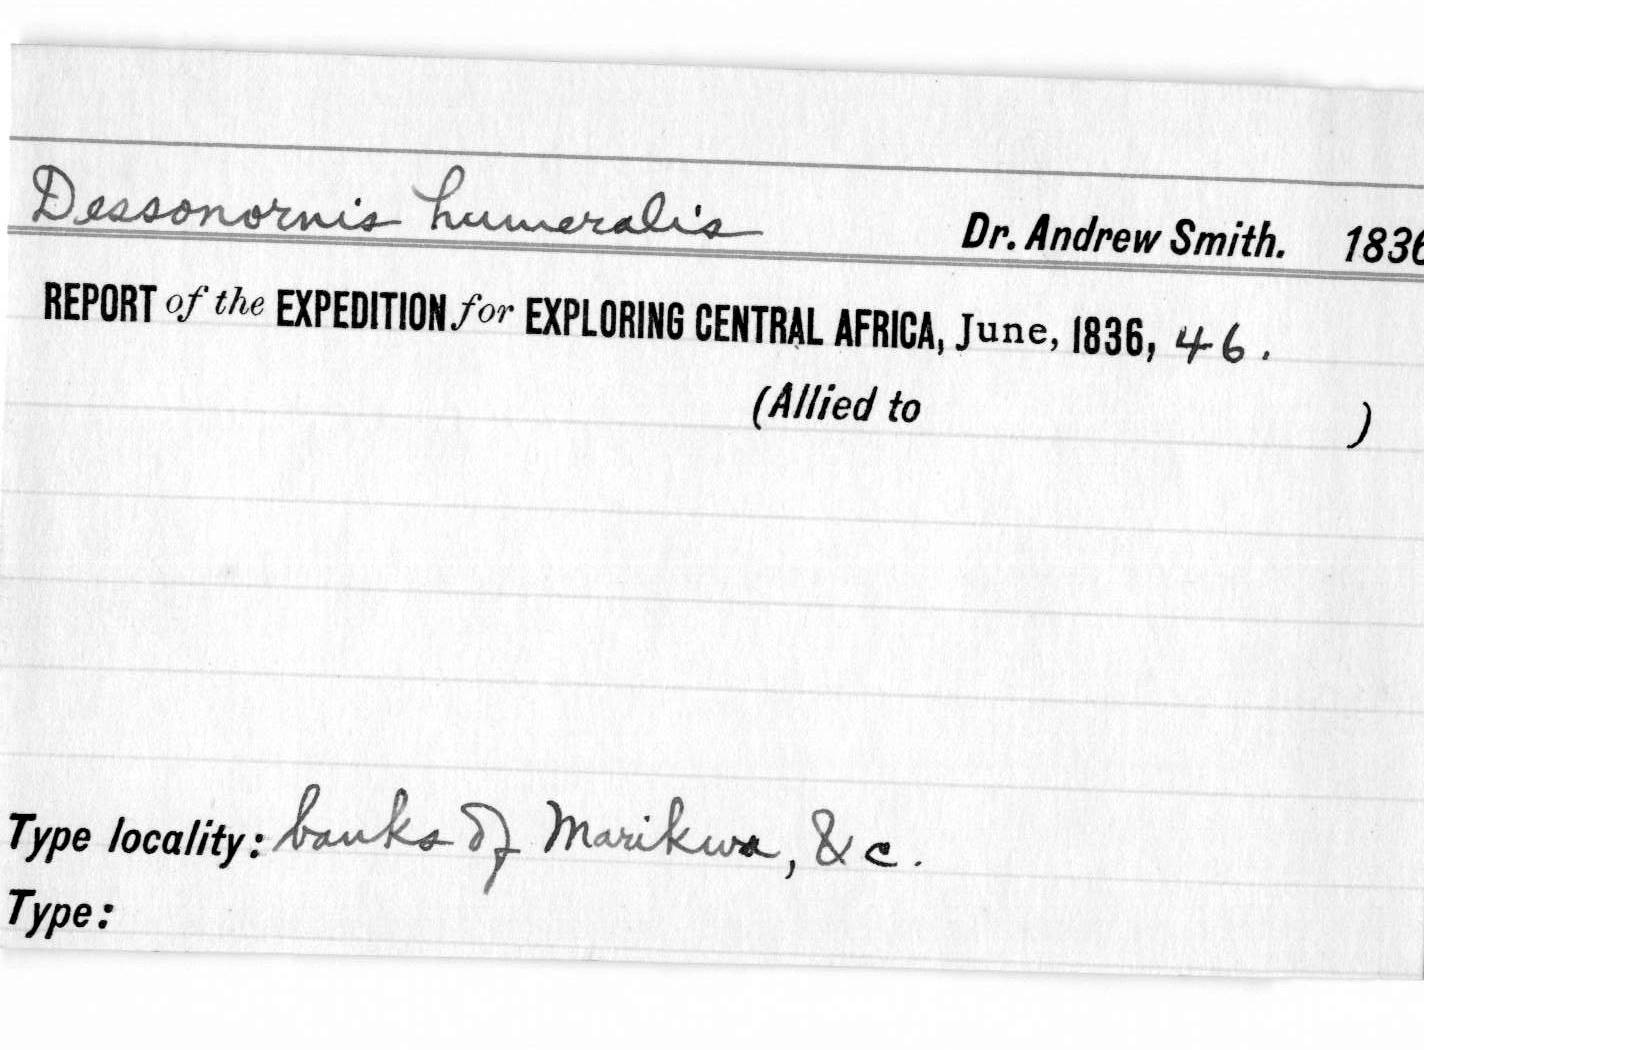 Dessonornis humeralis Dr. Andrew Smith. 1836
REPORT of the EXPEDITION for EXPLORING CENTRAL AFRICA, June, 1836, 46.
(Allied to )
Type locality: banks of Marikwa, &c.
Type: